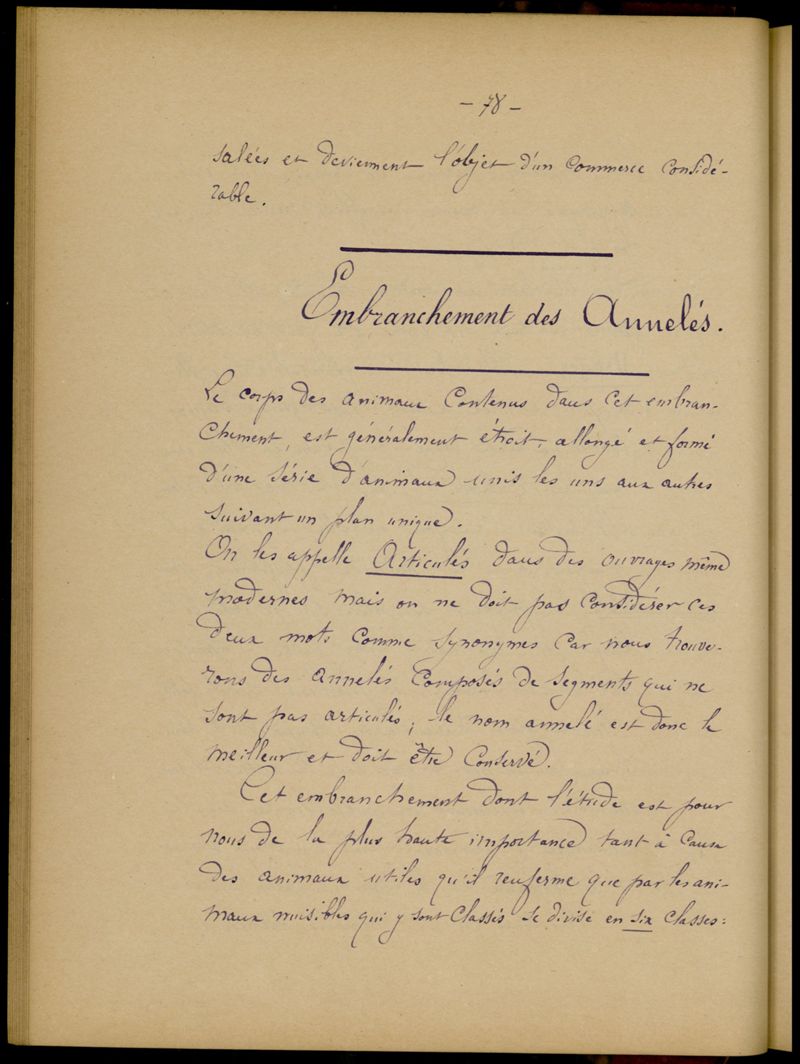 - 78 -
salées et deviennent l'objet d'un commerce considé-
rable.
Embranchement des Annelés.
Le corps des animaux contenus dans cet embran-
chement, est généralement étroit, allongé et formé
d'une série d'animaux unis les uns aux autres
suivant un plan unique.
On les appelle Articulés dans des ouvrages même
modernes mais on ne doit pas considérer ces
deux mots comme synonymes car nous trouve-
rons des annelés composés de segments qui ne
sont pas articulés; le nom annelé est donc le
meilleur et doit être conservé.
Cet embranchement dont l'étude est pour
nous de la plus haute importance tant à cause
des animaux utiles qu'il renferme que par les ani-
maux nuisibles qui y sont classés se divise en six classes: